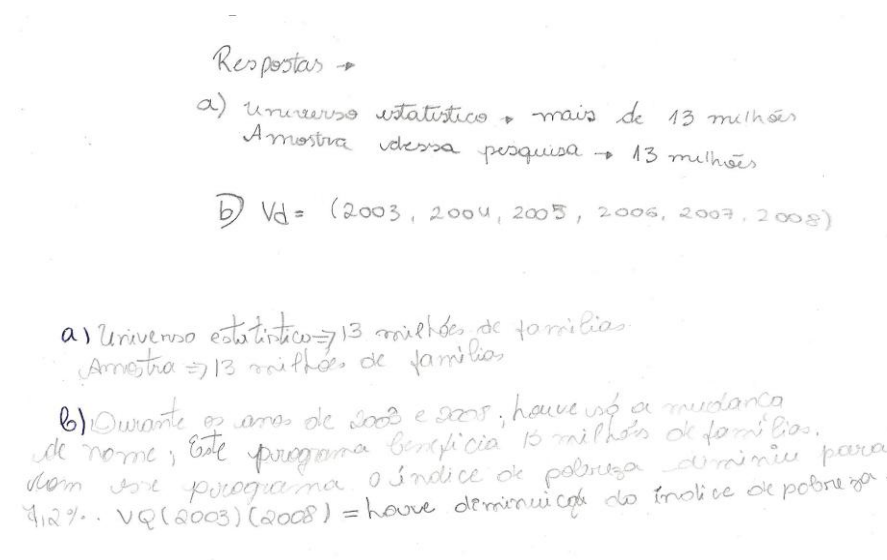 Respostas →
a) Universo estatístico → mais de 13 milhões
Amostra dessa pesquisa → 13 milhões
b) Vd = (2003, 2004, 2005, 2006, 2007, 2008)
a) Universo estatístico ⇒ 13 milhões de famílias
Amostra ⇒ 13 milhões de famílias
b) Durante os anos de 2003 e 2008; houve só a mudança
de nome; Este programa beneficia 13 milhões de famílias.
com esse programa o índice de pobreza diminiu para
7,2%. VQ (2003) (2008) = houve deminuição do índice de pobreza.